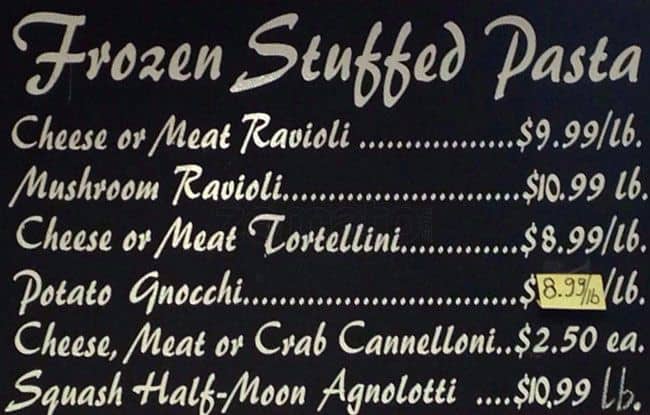 Frozen Stuffed Pasta
Cheese or Meat Ravioli ..................$9.99/lb.
Mushroom Ravioli...........................$10.99 lb.
Cheese or Meat Tortellini.............$8.99/lb.
Potato Gnocchi...............................$8.99/lb/lb.
Cheese, Meat or Crab Cannelloni..$2.50 ea.
Squash Half-Moon Agnolotti ....$10.99 Lb.